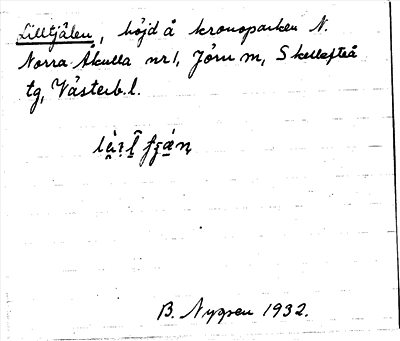 Lilltjålen, höjd å kronoparken N.
Norra Åkulla nr 1, Jörn m, Skellefteå
tg, Västerb. l.
B. Nygren 1932.